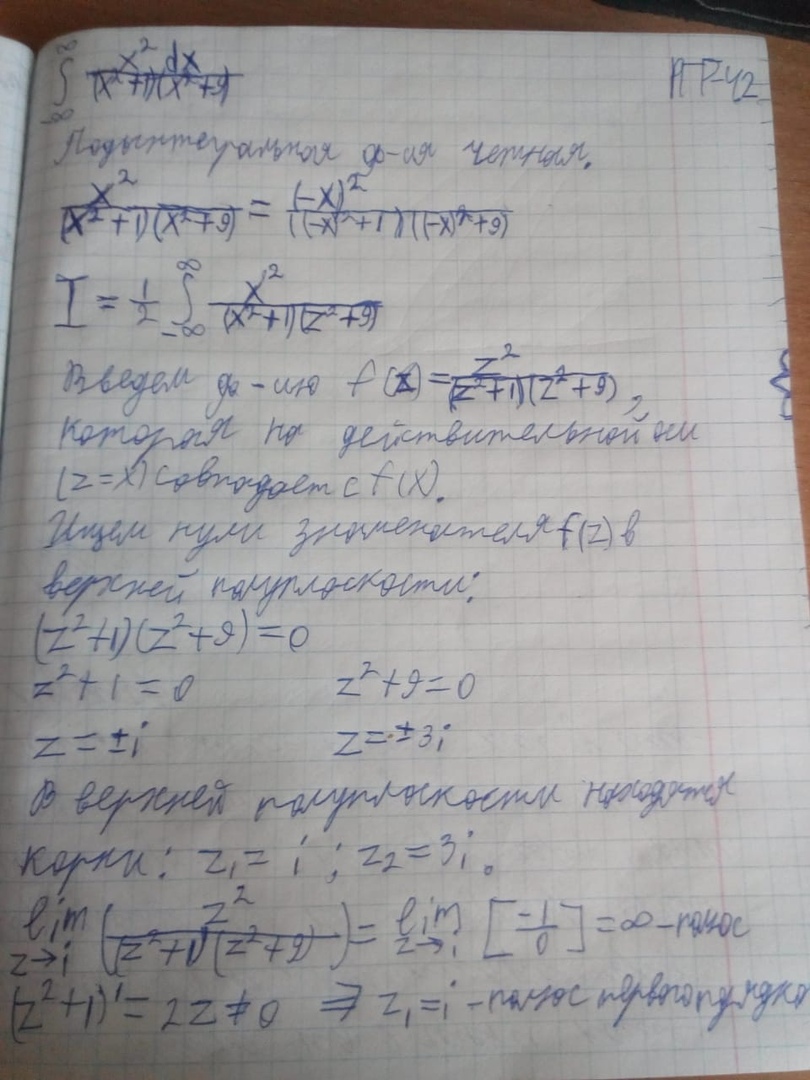 ∫_{-∞}^{∞} x² dx / (x²+1)(x²+9)
Подынтегральная ф-ия четная.
x² / (x²+1)(x²+9) = (-x)² / ((-x)²+1)((-x)²+9)
I = 1/2 ∫_{-∞}^{∞} x² / (x²+1)(z²+9)
Введем ф-ию f(z) = z² / (z²+1)(z²+9),
которая на действительной оси
(z=x) совпадает с f(x).
Ищем нули знаменателя f(z) в
верхней полуплоскости:
(z²+1)(z²+9)=0
z²+1=0 z²+9=0
z=±i z=±3i
В верхней полуплоскости находятся
корни: z₁=i; z₂=3i.
lim_{z→i} (z² / (z²+1)(z²+9)) = lim_{z→i} [-1/0] = ∞ - полюс
(z²+1)' = 2z≠0 ⇒ z₁=i - полюс первого порядка